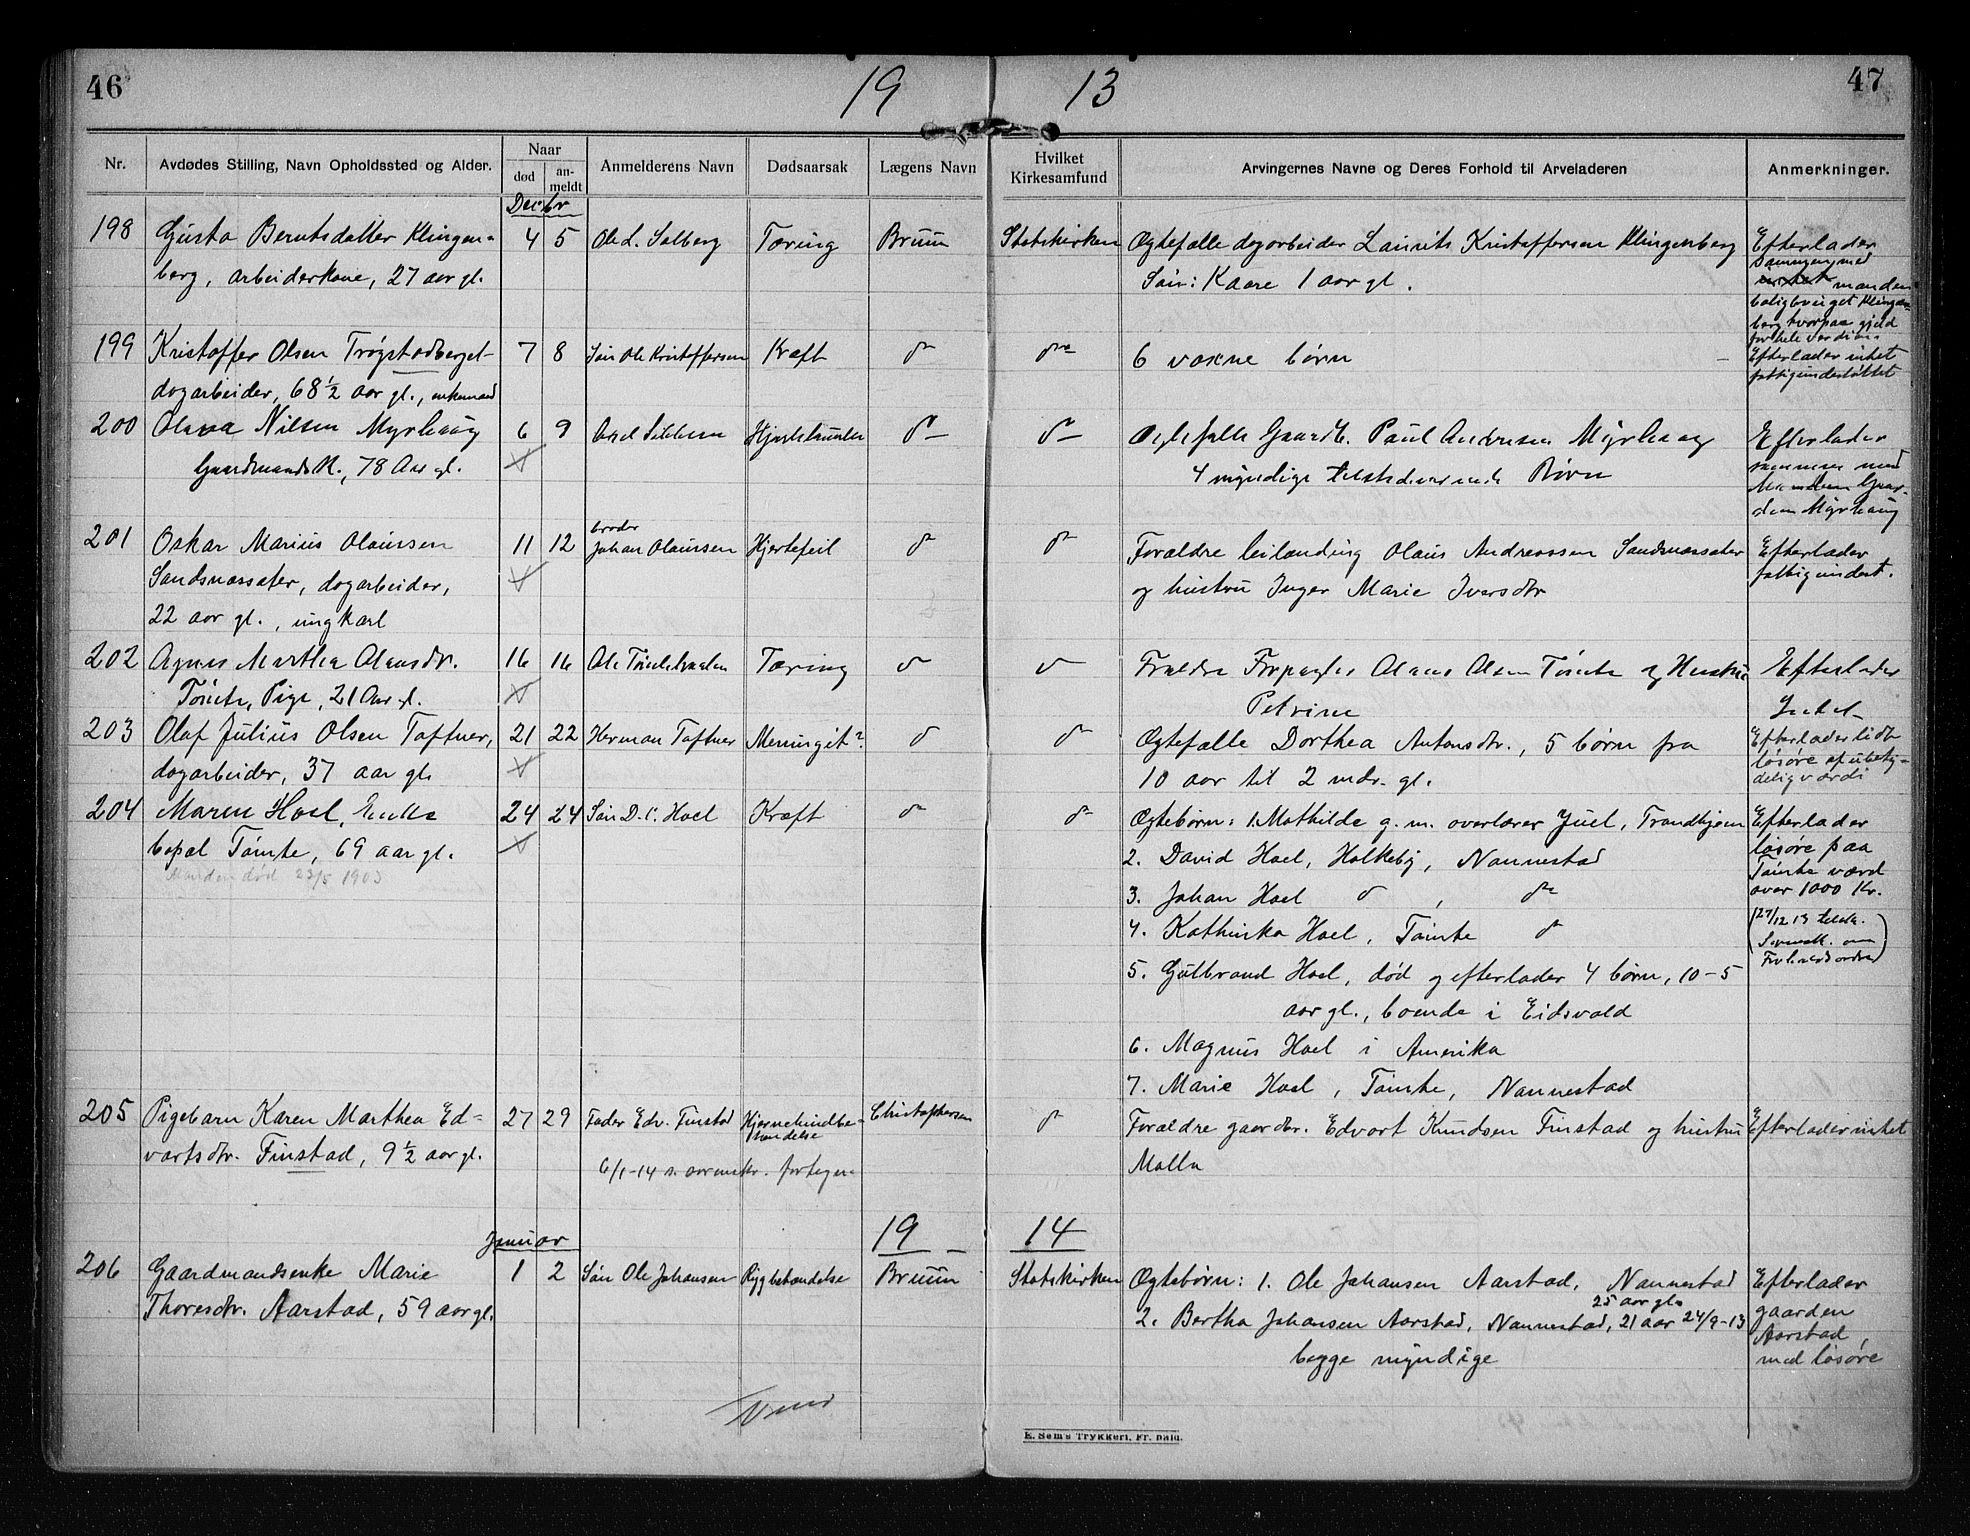 46
19 13
47
Nr.
Avdødes Stilling, Navn Opholdssted og Alder.
Naar
død
an-
meldt
Anmelderens Navn
Dødsaarsak
Lægens Navn
Hvilket
Kirkesamfund
Arvingernes Navne og Deres Forhold til Arveladeren
Anmerkninger.
Decbr
198 Gusta Berntsdatter Klingen= 4 5 Ole L. Solberg Tæring Bruun Statskirken Ægtefælle dagarbeider Laurits Kristoffersen Klingenberg Efterlader
berg, arbeiderkone, 27 aar gl. Søn: Kaare 1 aar gl. sammen med
manden
boligbruget Klingen=
berg hvorpaa gjeld
for hele verdien.
199 Kristoffer Olsen Trøgstadberget 7 8 Søn Ole Kristoffersen Kræft do do 6 voxne børn Efterlader intet
dagarbeider, 68½ aar gl., enkemand fattigunderstøttet
200 Olava Nilsen Myrhaug 6 9 Hjertelammelse do do Ægtefælle Gaardb. Paul Andersen Myrhaug Efterlader
Gaardmandsk., 78 Aar gl. 4 myndige tilstedeværende Børn sammen med
Manden Gaar-
den Myrhaug
201 Oskar Marius Olaussen 11 12 broder
Johan Olaussen Hjertefeil do do Forældre leilænding Olaus Andreassen Sandsnæssæter Efterlader
Sandsnæssæter, dagarbeider, og hustru Inger Marie Iversdtr fattigunderst.
22 aar gl., ungkarl
202 Agnes Marthea Olausdr. 16 16 Ole Tømtebraaten Tæring do do Forældre Forpagter Olaus Olsen Tømte og Hustru Efterlader
Tømte, Pige, 21 Aar gl. Petrine Intet
203 Olaf Julius Olsen Toftner, 21 22 Herman Toftner Meningit? do do Ægtefælle Dorthea Antonsdtr., 5 børn fra Efterlader lidt
dagarbeider, 37 aar gl. 10 aar til 2 mdr. gl. løsøre af ubety-
delig værdi
204 Maren Hoel, Enke 24 24 Søn D. C. Hoel Kræft do do Ægtebørn: 1. Mathilde g. m. overlærer Juel, Trondhjem Efterlader
bopæl Tømte, 69 aar gl. 2. David Hoel, Holkeby, Nannestad løsøre paa
Manden død 23/5 1903 3. Johan Hoel do, do Tømte værd
over 1000 Kr.
4. Kathinka Hoel, Tømte do (27/12 13
5. Gulbrand Hoel, død og efterlader 4 børn, 10-5
aar gl., boende i Eidsvold
6. Magnus Hoel i Amerika
7. Marie Hoel, Tømte, Nannestad
205 Pigebarn Karen Marthea Ed= 27 29 Fader Edv. Finstad Hjernehindbe= Christophersen do Forældre gaardbr. Edvart Knudsen Finstad og hustru Efterlader intet
vartsdtr. Finstad, 9½ aar gl. tændelse Malla
6/1-14 s.
19 14
Januar
206 Gaardmandsenke Marie 1 2 Søn Ole Johansen Rygbetændelse Bruun Statskirken Ægtebørn: 1. Ole Johansen Aarstad, Nannestad Efterlader
25 aar gl.
Thoresdtr. Aarstad, 59 aar gl. 2. Bertha Johansen Aarstad, Nannestad, 21 aar 24/9-13 gaarden
begge myndige Aarstad,
med løsøre
Vend
E. Sem's Trykkeri, Fr.hald.